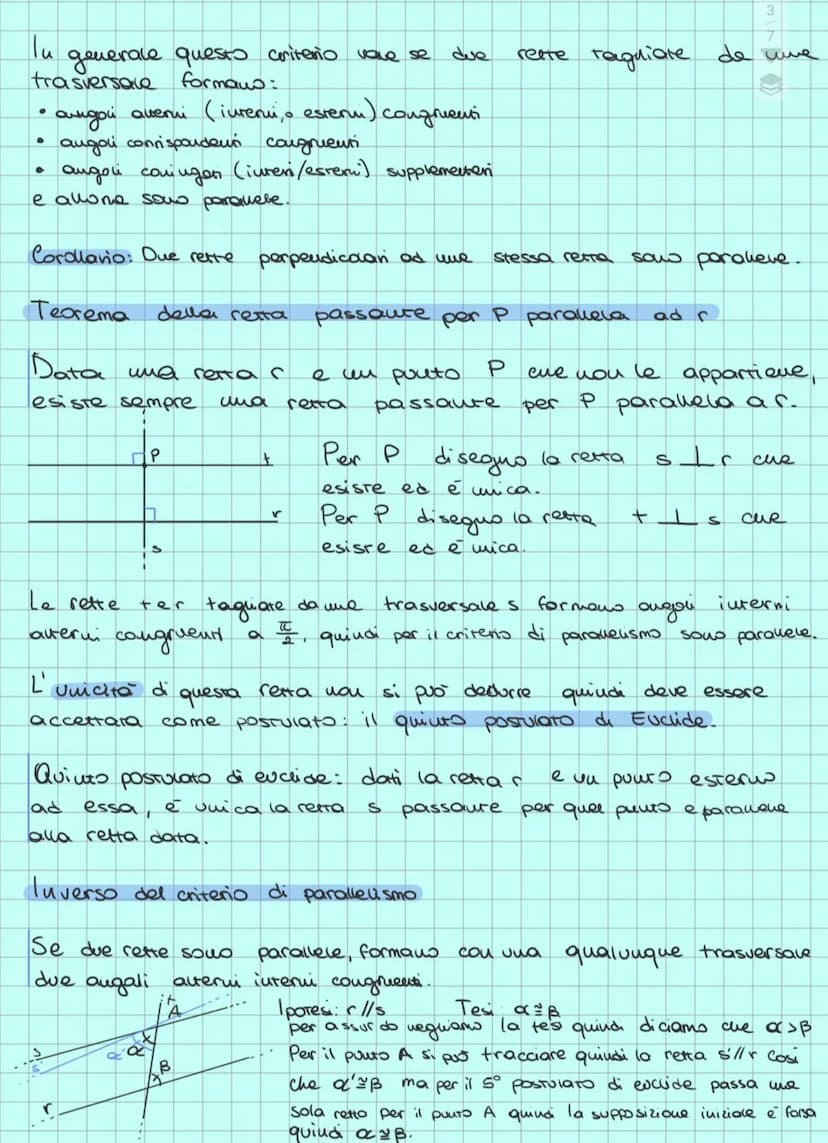 3
7
In generale questo criterio vale se due rette tagliate da una
trasversale formano:
• angoli alterni (interni, o esterni) congruenti
• angoli corrispondenti congruenti
• angoli coniugati (interni/esterni) supplementari
e allora sono parallele.
Corollario: Due rette perpendicolari ad una stessa retta sono parallele.
Teorema della retta passante per P parallela ad r
Data una retta r e un punto P che non le appartiene,
esiste sempre una retta passante per P parallela a r.
P
t
r
s
Per P disegno la retta s ⊥ r che
esiste ed é unica.
Per P disegno la retta t ⊥ s che
esiste ed é unica.
Le rette t e r tagliate da una trasversale s formano angoli interni
alterni congruenti a π/2, quindi per il criterio di parallelismo sono parallele.
L'unicità di questa retta non si può dedurre quindi deve essere
accettata come postulato: il quinto postulato di Euclide.
Quinto postulato di euclide: dati la retta r e un punto esterno
ad essa, é unica la retta s passante per quel punto e parallela
alla retta data.
Inverso del criterio di parallelismo
Se due rette sono parallele, formano con una qualunque trasversale
due angoli alterni interni congruenti.
t
A
s
s'
α'
α
β
B
r
Ipotesi: r//s Tesi α≅β
per assurdo neghiamo la tesi quindi diciamo che α>β
Per il punto A si può tracciare quindi la retta s'//r così
che α'≅β ma per il 5° postulato di euclide passa una
sola retta per il punto A quindi la supposizione iniziale é falsa
quindi α≅β.